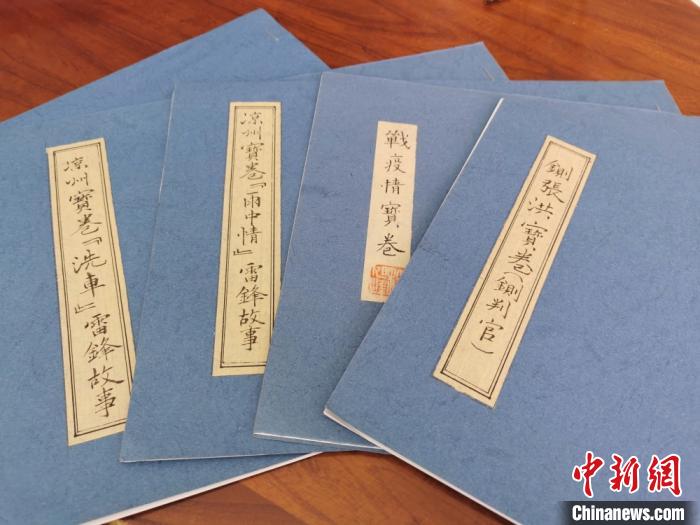 涼州寶卷『洗車』雷鋒故事
涼州寶卷『雨中情』雷鋒故事
戰疫情寶卷
鍘張洪寶卷(鍘判官)
中新网
Chinanews.com